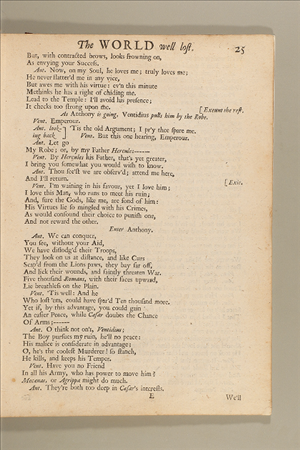 The WORLD well lost. 25
But, with contracted brows, looks frowning on,
As envying your Success.
Ant. Now, on my Soul, he loves me; truly loves me;
He never flatter'd me in any vice,
But awes me with his virtue: ev'n this minute
Methinks he has a right of chiding me.
Lead to the Temple: I'll avoid his presence;
It checks too strong upon me. [Exeunt the rest.
As Anthony is going, Ventidius pulls him by the Robe.
Vent. Emperour.
Ant. looking back } 'Tis the old Argument; I pr'y thee spare me.
Vent. But this one hearing, Emperour.
Ant. Let go
My Robe; or, by my Father Hercules------
Vent. By Hercules his Father, that's yet greater,
I bring you somewhat you would wish to know.
Ant. Thou see'st we are observ'd; attend me here,
And I'll return. [Exit.
Vent. I'm waining in his favour, yet I love him;
I love this Man, who runs to meet his ruine;
And, sure the Gods, like me, are fond of him:
His Virtues lye so mingled with his Crimes,
As would confound their choice to punish one,
And not reward the other.
Enter Anthony.
Ant. We can conquer,
You see, without your Aid,
We have dislodg'd their Troops,
They look on us at distance, and like Curs
Scap'd from the Lions paws, they bay far off,
And lick their wounds, and faintly threaten War.
Five thousand Romans, with their faces upward,
Lie breathless on the Plain.
Vent. 'Tis well: And he
Who lost 'em, could have spar'd Ten thousand more.
Yet if, by this advantage, you could gain
An easier Peace, while Cæsar doubts the Chance
Of Arms;------
Ant. O think not on't, Ventidius;
The Boy pursues my ruin, he'll no peace:
His malice is considerate in advantage:
O, he's the coolest Murderer! so stanch,
He kills, and keeps his Temper.
Vent. Have you no Friend
In all his Army, who has power to move him?
Mecænas, or Agrippa might do much.
Ant. They're both too deep in Cæsar's interests.
E We'll